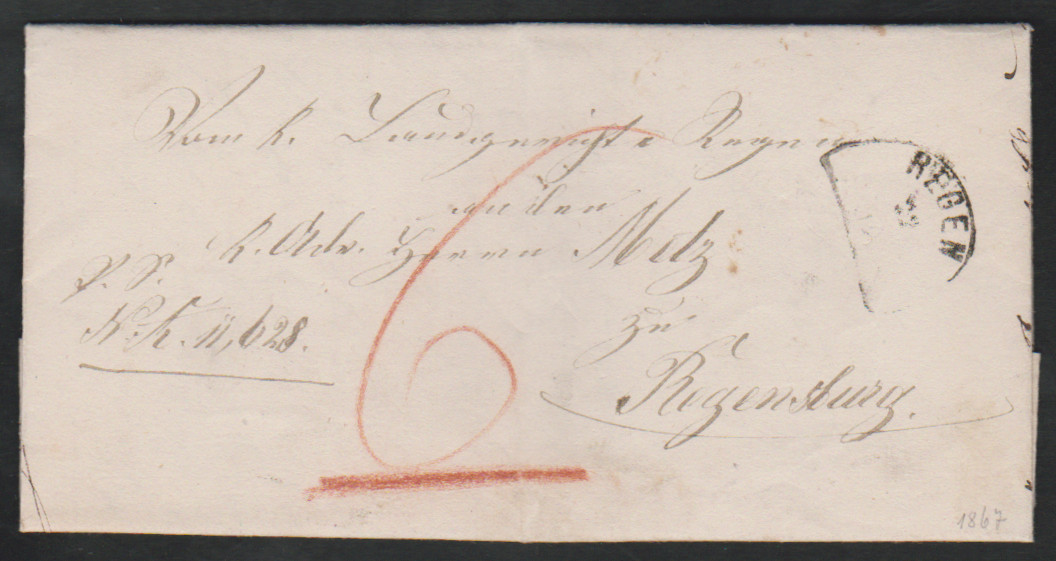 Vom k. Landgerichte Regen
an den
k. Adv. Herrn Metz
P. S.
N. E. 11,628.
zu
Regensburg.
6
REGEN
1867